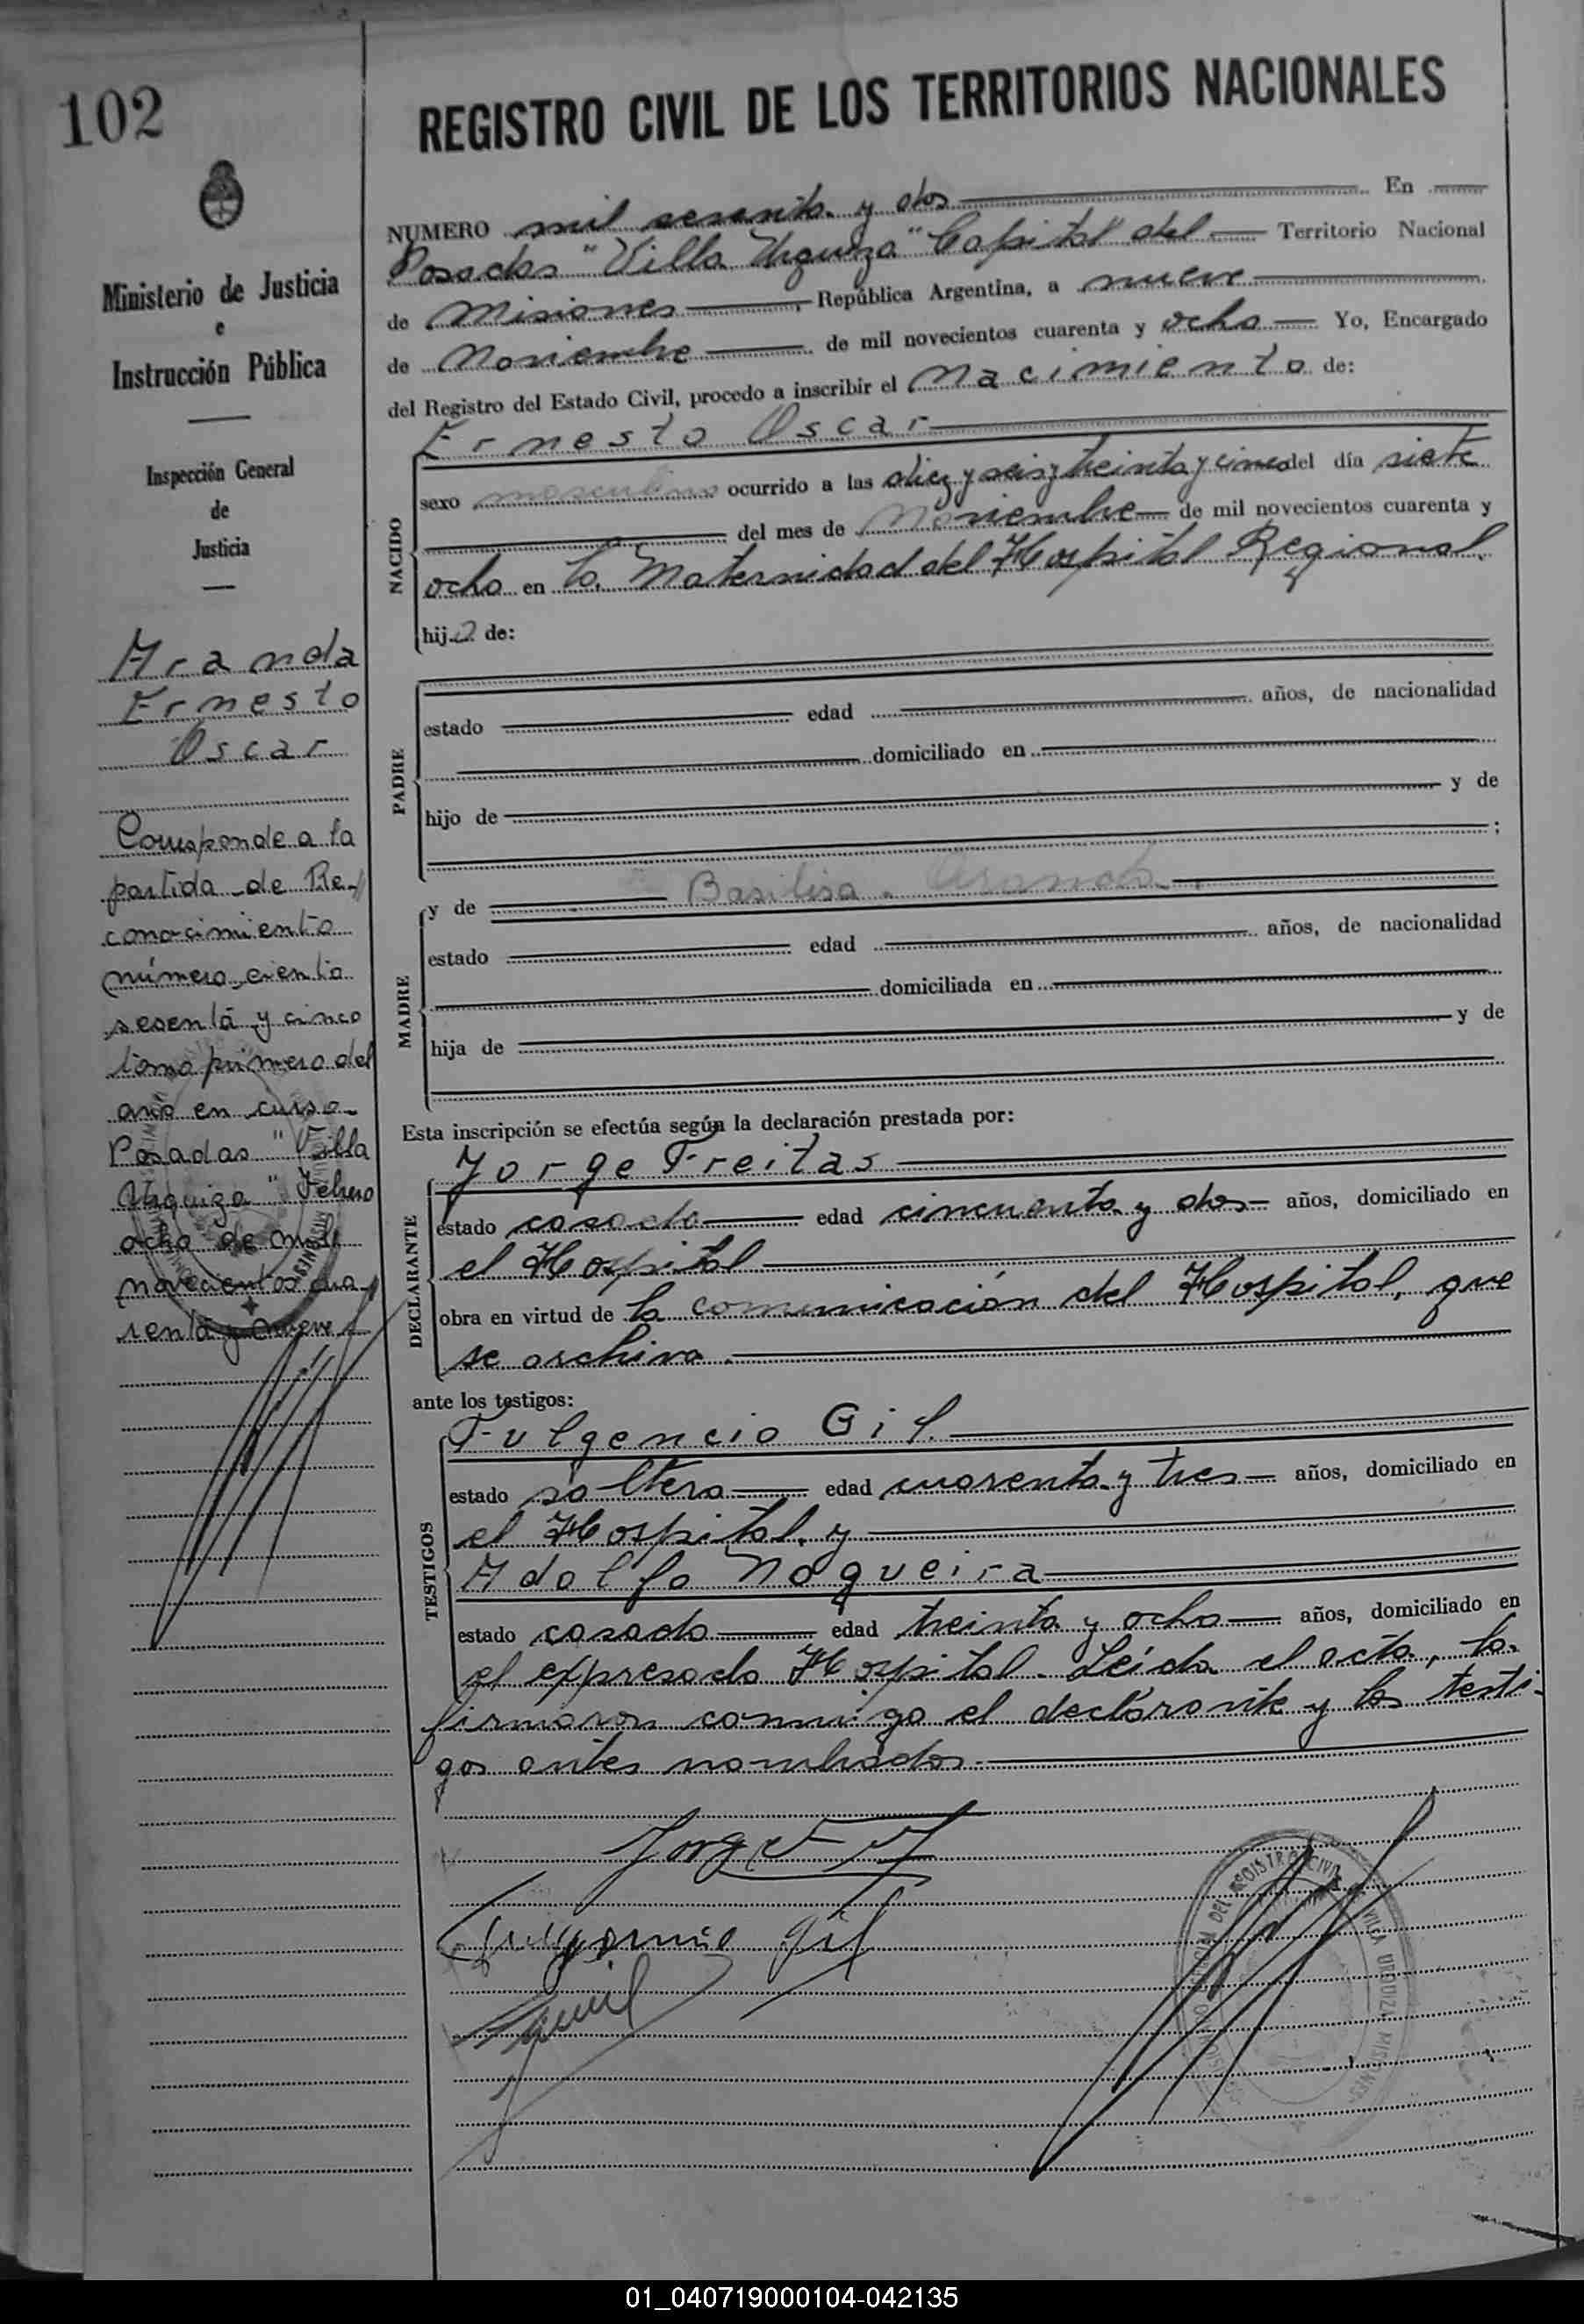 102
REGISTRO CIVIL DE LOS TERRITORIOS NACIONALES
Ministerio de Justicia
e
Instrucción Pública
Inspección General
de
Justicia
Aranda
Ernesto
Oscar
Corresponde a la
partida de Re-
conocimiento
número ciento
sesenta y cinco
tomo primero del
año en curso.
Posadas "Villa
Urquiza" Febrero
ocho de mil
novecientos cua-
renta y nueve
NUMERO mil sesenta y dos En
Posadas "Villa Urquiza" Capital del Territorio Nacional
de Misiones, República Argentina, a nueve
de Noviembre de mil novecientos cuarenta y ocho Yo, Encargado
del Registro del Estado Civil, procedo a inscribir el Nacimiento de:
Ernesto Oscar
NACIDO
sexo masculino ocurrido a las diez y seis y treinta y cinco del día siete
del mes de Noviembre de mil novecientos cuarenta y
ocho en la Maternidad del Hospital Regional.
hijo de:
PADRE
estado edad años, de nacionalidad
domiciliado en
hijo de y de
;
MADRE
y de Basilisa Aranda
estado edad años, de nacionalidad
domiciliada en
hija de y de
Esta inscripción se efectúa según la declaración prestada por:
DECLARANTE
Jorge Freitas
estado casado edad cincuenta y dos años, domiciliado en
el Hospital
obra en virtud de la comunicación del Hospital, que
se archiva.
ante los testigos:
TESTIGOS
Fulgencio Gil
estado soltero edad cuarenta y tres años, domiciliado en
el Hospital y
Adolfo Nogueira
estado casado edad treinta y ocho años, domiciliado en
el expresado Hospital. Leída el acta, la
firmaron conmigo el declarante y los testi-
gos antes nombrados.
Fulgencio Gil
REGISTRO CIVIL VILLA URQUIZA MISIONES
01_040719000104-042135